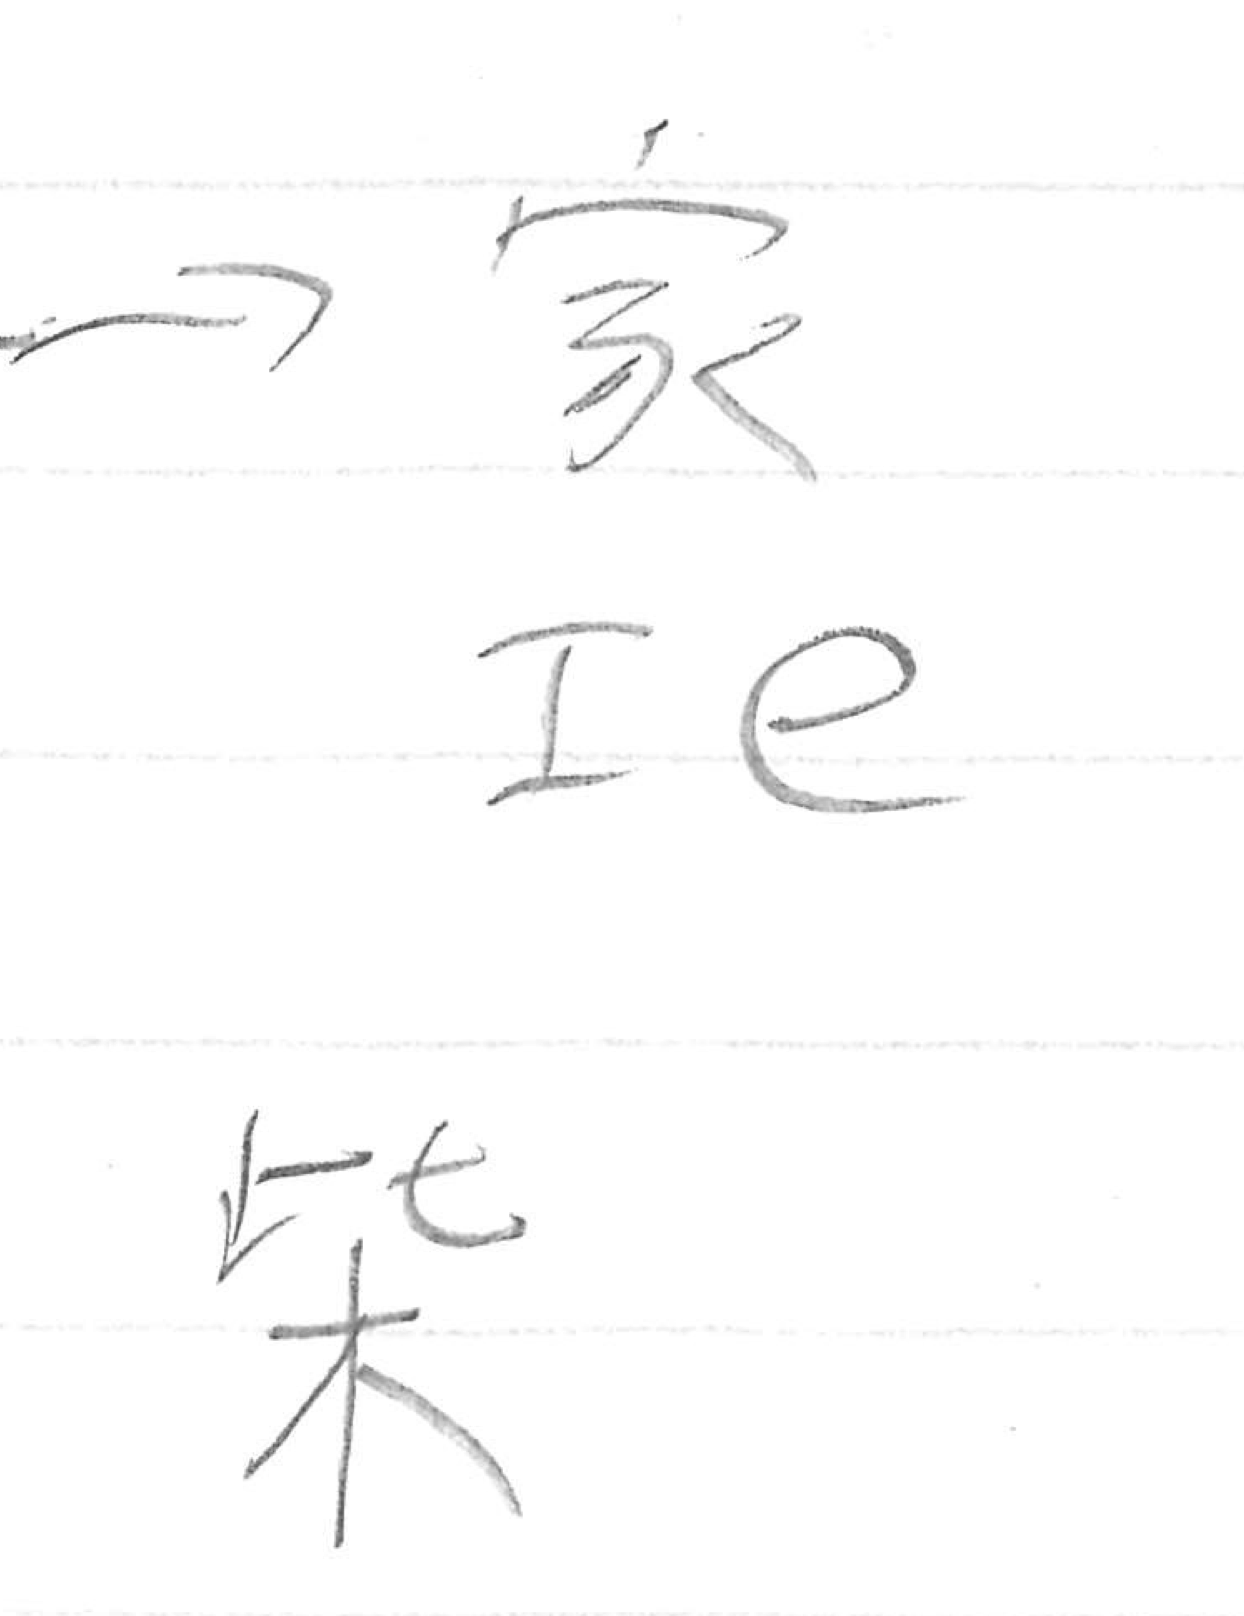 → 家
Ie
柴